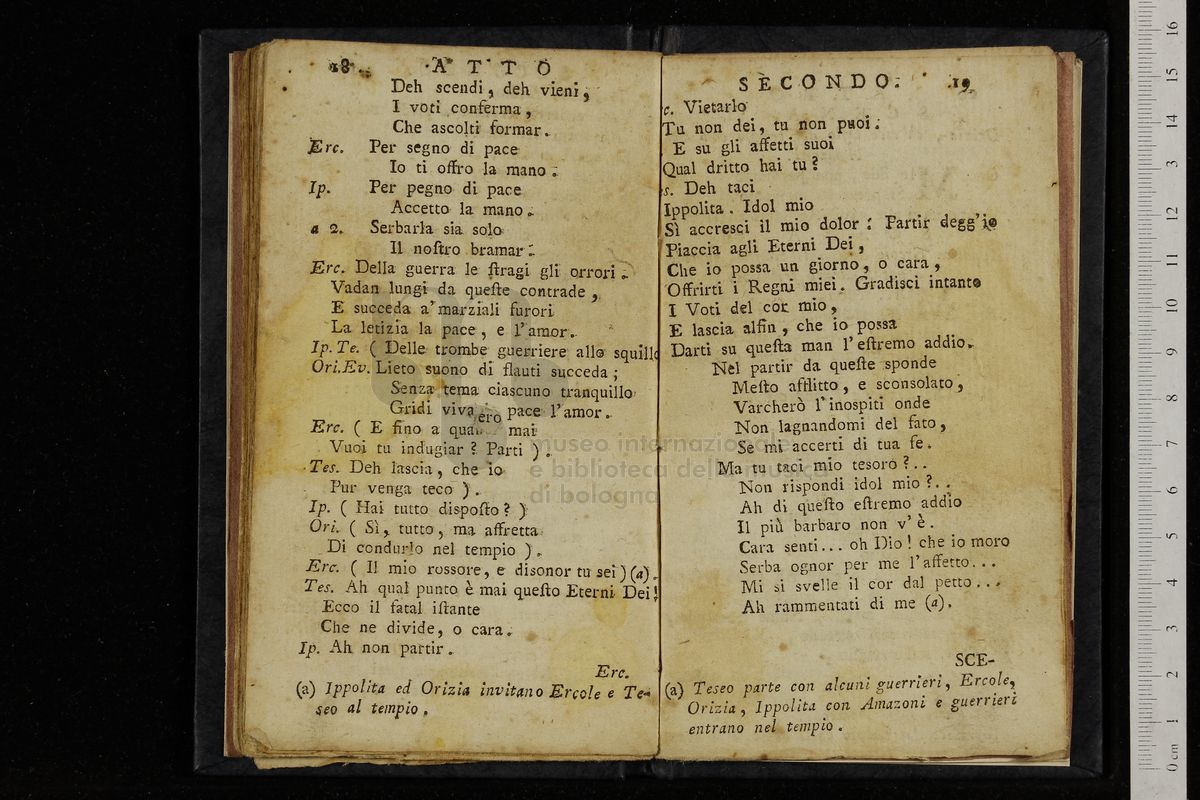 18 ATTO
Deh scendi, deh vieni,
I voti conferma,
Che ascolti formar.
Erc. Per segno di pace
Io ti offro la mano:
Ip. Per pegno di pace
Accetto la mano.
a 2. Serbarla sia solo
Il noſtro bramar.
Erc. Della guerra le ſtragi gli orrori.
Vadan lungi da queſte contrade,
E succeda a' marziali furori
La letizia la pace, e l'amor.
Ip. Te. ( Delle trombe guerriere allo squillo
Ori. Ev. Lieto suono di flauti succeda;
Senza tema ciascuno tranquillo
Gridi viva pace l'amor.
Erc. ( E fino a mai
Vuoi tu indugiar? Parti ).
Tes. Deh lascia, che io
Pur venga teco ).
Ip. ( Hai tutto dispoſto? )
Ori. ( Sì, tutto, ma affretta
Di condurlo nel tempio ).
Erc. ( Il mio rossore, e disonor tu sei ) (a).
Tes. Ah qual punto è mai queſto Eterni Dei!
Ecco il fatal iſtante
Che ne divide, o cara.
Ip. Ah non partir.
Erc.
(a) Ippolita ed Orizia invitano Ercole e Te-
seo al tempio.
SECONDO. 19
c. Vietarlo
Tu non dei, tu non puoi.
E su gli affetti suoi
Qual dritto hai tu?
s. Deh taci
Ippolita. Idol mio
Sì accresci il mio dolor: Partir degg'io
Piaccia agli Eterni Dei,
Che io possa un giorno, o cara,
Offrirti i Regni miei. Gradisci intanto
I Voti del cor mio,
E lascia alfin, che io possa
Darti su queſta man l'eſtremo addio.
Nel partir da queſte sponde
Meſto afflitto, e sconsolato,
Varcherò l'inospiti onde
Non lagnandomi del fato,
Se mi accerti di tua fe.
Ma tu taci mio tesoro?..
Non rispondi idol mio?..
Ah di queſto eſtremo addio
Il più barbaro non v'è.
Cara senti... oh Dio! che io moro
Serba ognor per me l'affetto...
Mi si svelle il cor dal petto...
Ah rammentati di me (a).
SCE-
(a) Teseo parte con alcuni guerrieri, Ercole,
Orizia, Ippolita con Amazoni e guerrieri
entrano nel tempio.
museo internazionale
e biblioteca della musica
di bologna
0 cm 1 2 3 4 5 6 7 8 9 10 11 12 13 14 15 16